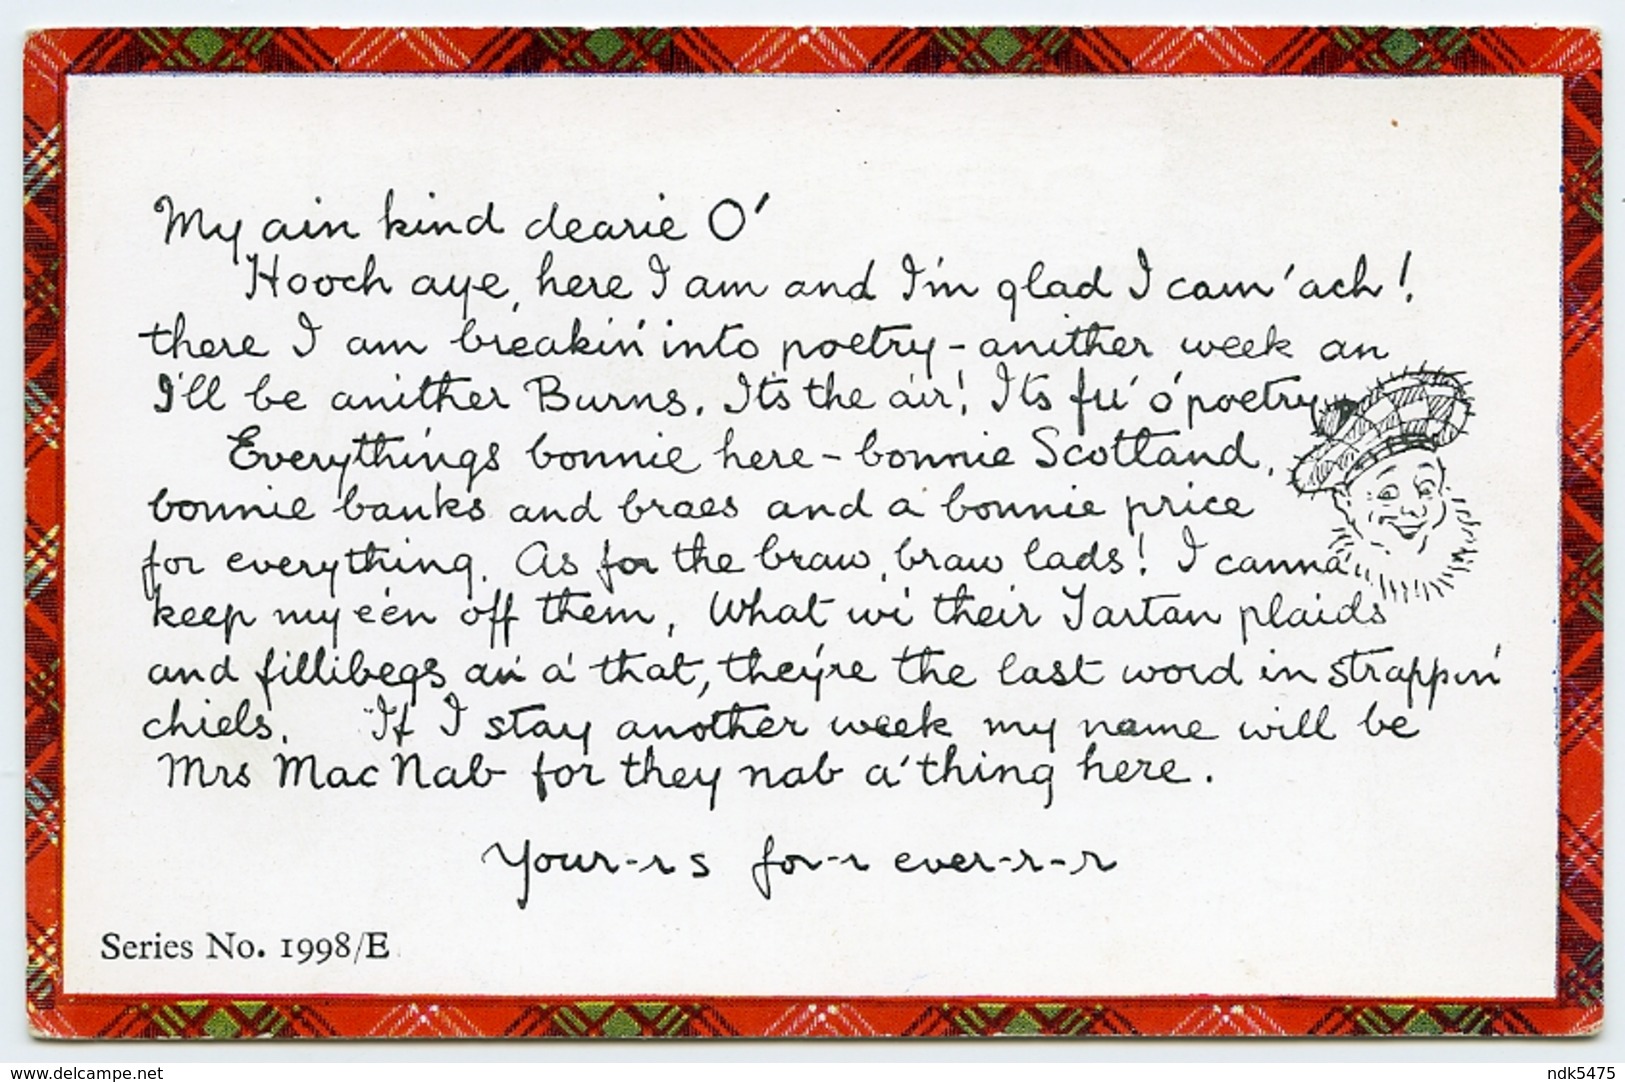 My ain kind dearie O'
Hooch aye, here I am and I'm glad I cam' ach!
there I am breakin' into poetry - anither week an
I'll be anither Burns. It's the air! It's fu' o' poetry.
Everything's bonnie here - bonnie Scotland,
bonnie banks and braes and a bonnie price
for everything. As for the braw, braw lads! I canna
keep my e'en off them, What wi' their Tartan plaids
and fillibegs an' a' that, they're the last word in strappin'
chiels. If I stay another week my name will be
Mrs MacNab for they nab a'thing here.
Your-rs for-r ever-r-r
Series No. 1998/E
www.delcampe.net
ndk5475